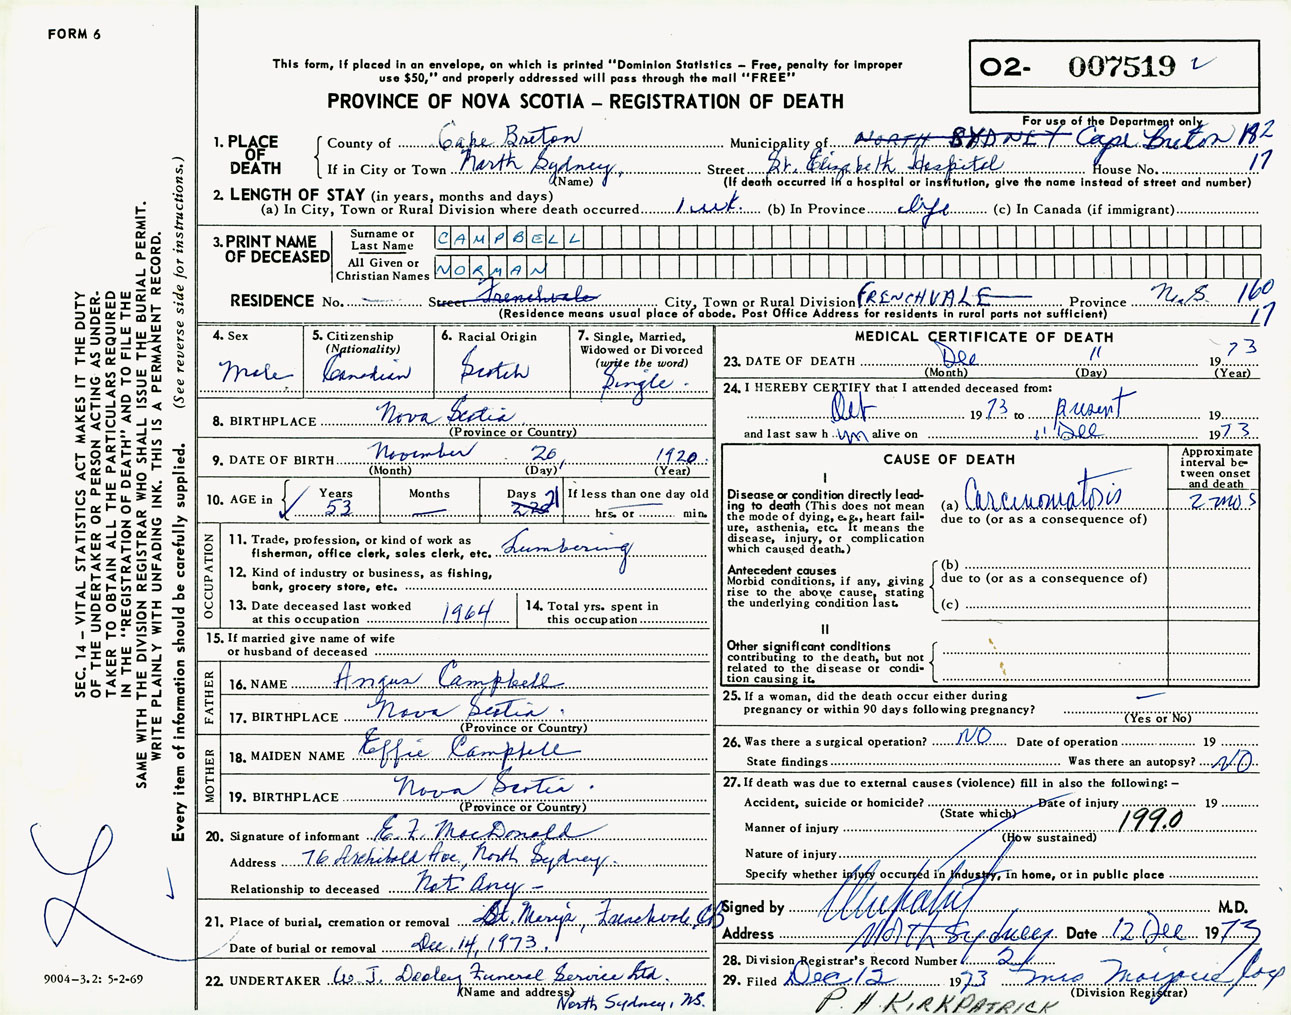 FORM 6
This form, if placed in an envelope, on which is printed "Dominion Statistics – Free, penalty for improper
use $50," and properly addressed will pass through the mail "FREE"
PROVINCE OF NOVA SCOTIA – REGISTRATION OF DEATH
02- 007519
For use of the Department only
182
17
1. PLACE OF DEATH
County of Cape Breton Municipality of NORTH SYDNEY Cape Breton
If in City or Town North Sydney, Street St. Elizabeth Hospital House No.
(Name) (If death occurred in a hospital or institution, give the name instead of street and number)
2. LENGTH OF STAY (in years, months and days)
(a) In City, Town or Rural Division where death occurred 1 wk. (b) In Province life (c) In Canada (if immigrant)
3. PRINT NAME OF DECEASED
Surname or Last Name CAMPBELL
All Given or Christian Names NORMAN
RESIDENCE No. Street Frenchvale City, Town or Rural Division FRENCHVALE Province N.S. 160
17
(Residence means usual place of abode. Post Office Address for residents in rural parts not sufficient)
4. Sex
Male
5. Citizenship
(Nationality)
Canadian
6. Racial Origin
Scotch
7. Single, Married,
Widowed or Divorced
(write the word)
Single.
8. BIRTHPLACE Nova Scotia
(Province or Country)
9. DATE OF BIRTH November 20, 1920
(Month) (Day) (Year)
10. AGE in Years 53 Months — Days 21 If less than one day old
hrs. or min.
OCCUPATION
11. Trade, profession, or kind of work as
fisherman, office clerk, sales clerk, etc. Lumbering
12. Kind of industry or business, as fishing,
bank, grocery store, etc.
13. Date deceased last worked
at this occupation 1964
14. Total yrs. spent in
this occupation
15. If married give name of wife
or husband of deceased
FATHER
16. NAME Angus Campbell
17. BIRTHPLACE Nova Scotia.
(Province or Country)
MOTHER
18. MAIDEN NAME Effie Campbell
19. BIRTHPLACE Nova Scotia.
(Province or Country)
20. Signature of informant E. F. MacDonald
Address 76 Archibald Ave, North Sydney.
Relationship to deceased Not Any –
21. Place of burial, cremation or removal St. Mary's, Frenchvale, CB
Date of burial or removal Dec. 14, 1973.
22. UNDERTAKER W. J. Dooley Funeral Service Ltd.
(Name and address)
North Sydney, N.S.
MEDICAL CERTIFICATE OF DEATH
23. DATE OF DEATH Dec 11 1973
(Month) (Day) (Year)
24. I HEREBY CERTIFY that I attended deceased from:
Oct 1973 to present 19
and last saw him alive on 11 Dec 1973
CAUSE OF DEATH
Approximate
interval be-
tween onset
and death
I
Disease or condition directly lead-
ing to death (This does not mean
the mode of dying, e.g., heart fail-
ure, asthenia, etc. It means the
disease, injury, or complication
which caused death.)
(a) Carcinomatosis 2 mos
due to (or as a consequence of)
Antecedent causes
Morbid conditions, if any, giving
rise to the above cause, stating
the underlying condition last.
(b)
due to (or as a consequence of)
(c)
II
Other significant conditions
contributing to the death, but not
related to the disease or condi-
tion causing it.
25. If a woman, did the death occur either during
pregnancy or within 90 days following pregnancy? —
(Yes or No)
26. Was there a surgical operation? NO Date of operation 19
State findings Was there an autopsy? NO
27. If death was due to external causes (violence) fill in also the following: –
Accident, suicide or homicide? Date of injury 19
(State which)
Manner of injury 199.0
(How sustained)
Nature of injury
Specify whether injury occurred in Industry, in home, or in public place
Signed by M.D.
Address North Sydney Date 12 Dec 1973
28. Division Registrar's Record Number 2
29. Filed Dec 12 1973 Mrs
(Division Registrar)
P. H. KIRKPATRICK
SEC. 14 – VITAL STATISTICS ACT MAKES IT THE DUTY
OF THE UNDERTAKER OR PERSON ACTING AS UNDER-
TAKER TO OBTAIN ALL THE PARTICULARS REQUIRED
IN THE "REGISTRATION OF DEATH" AND TO FILE THE
SAME WITH THE DIVISION REGISTRAR WHO SHALL ISSUE THE BURIAL PERMIT.
WRITE PLAINLY WITH UNFADING INK. THIS IS A PERMANENT RECORD.
Every item of information should be carefully supplied. (See reverse side for instructions.)
9004-3.2: 5-2-69